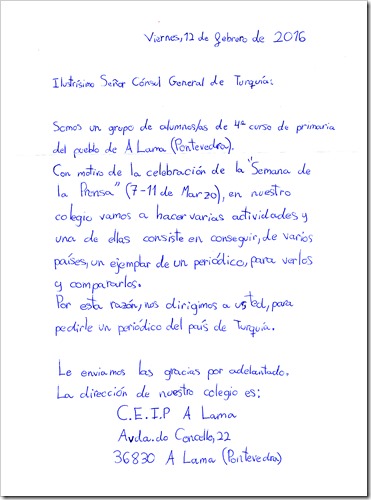 Viernes, 12 de febrero de 2016
Ilustrísimo Señor Cónsul General de Turquía:
Somos un grupo de alumnos/as de 4º curso de primaria
del pueblo de A Lama (Pontevedra).
Con motivo de la celebración de la "Semana de
la Prensa" (7-11 de Marzo), en nuestro
colegio vamos a hacer varias actividades y
una de ellas consiste en conseguir, de varios
países, un ejemplar de un periódico, para verlos
y compararlos.
Por esta razón, nos dirigimos a usted, para
pedirle un periódico del país de Turquía.
Le enviamos las gracias por adelantado.
La dirección de nuestro colegio es:
C.E.I.P A Lama
Avda. do Concello, 22
36830 A Lama (Pontevedra)